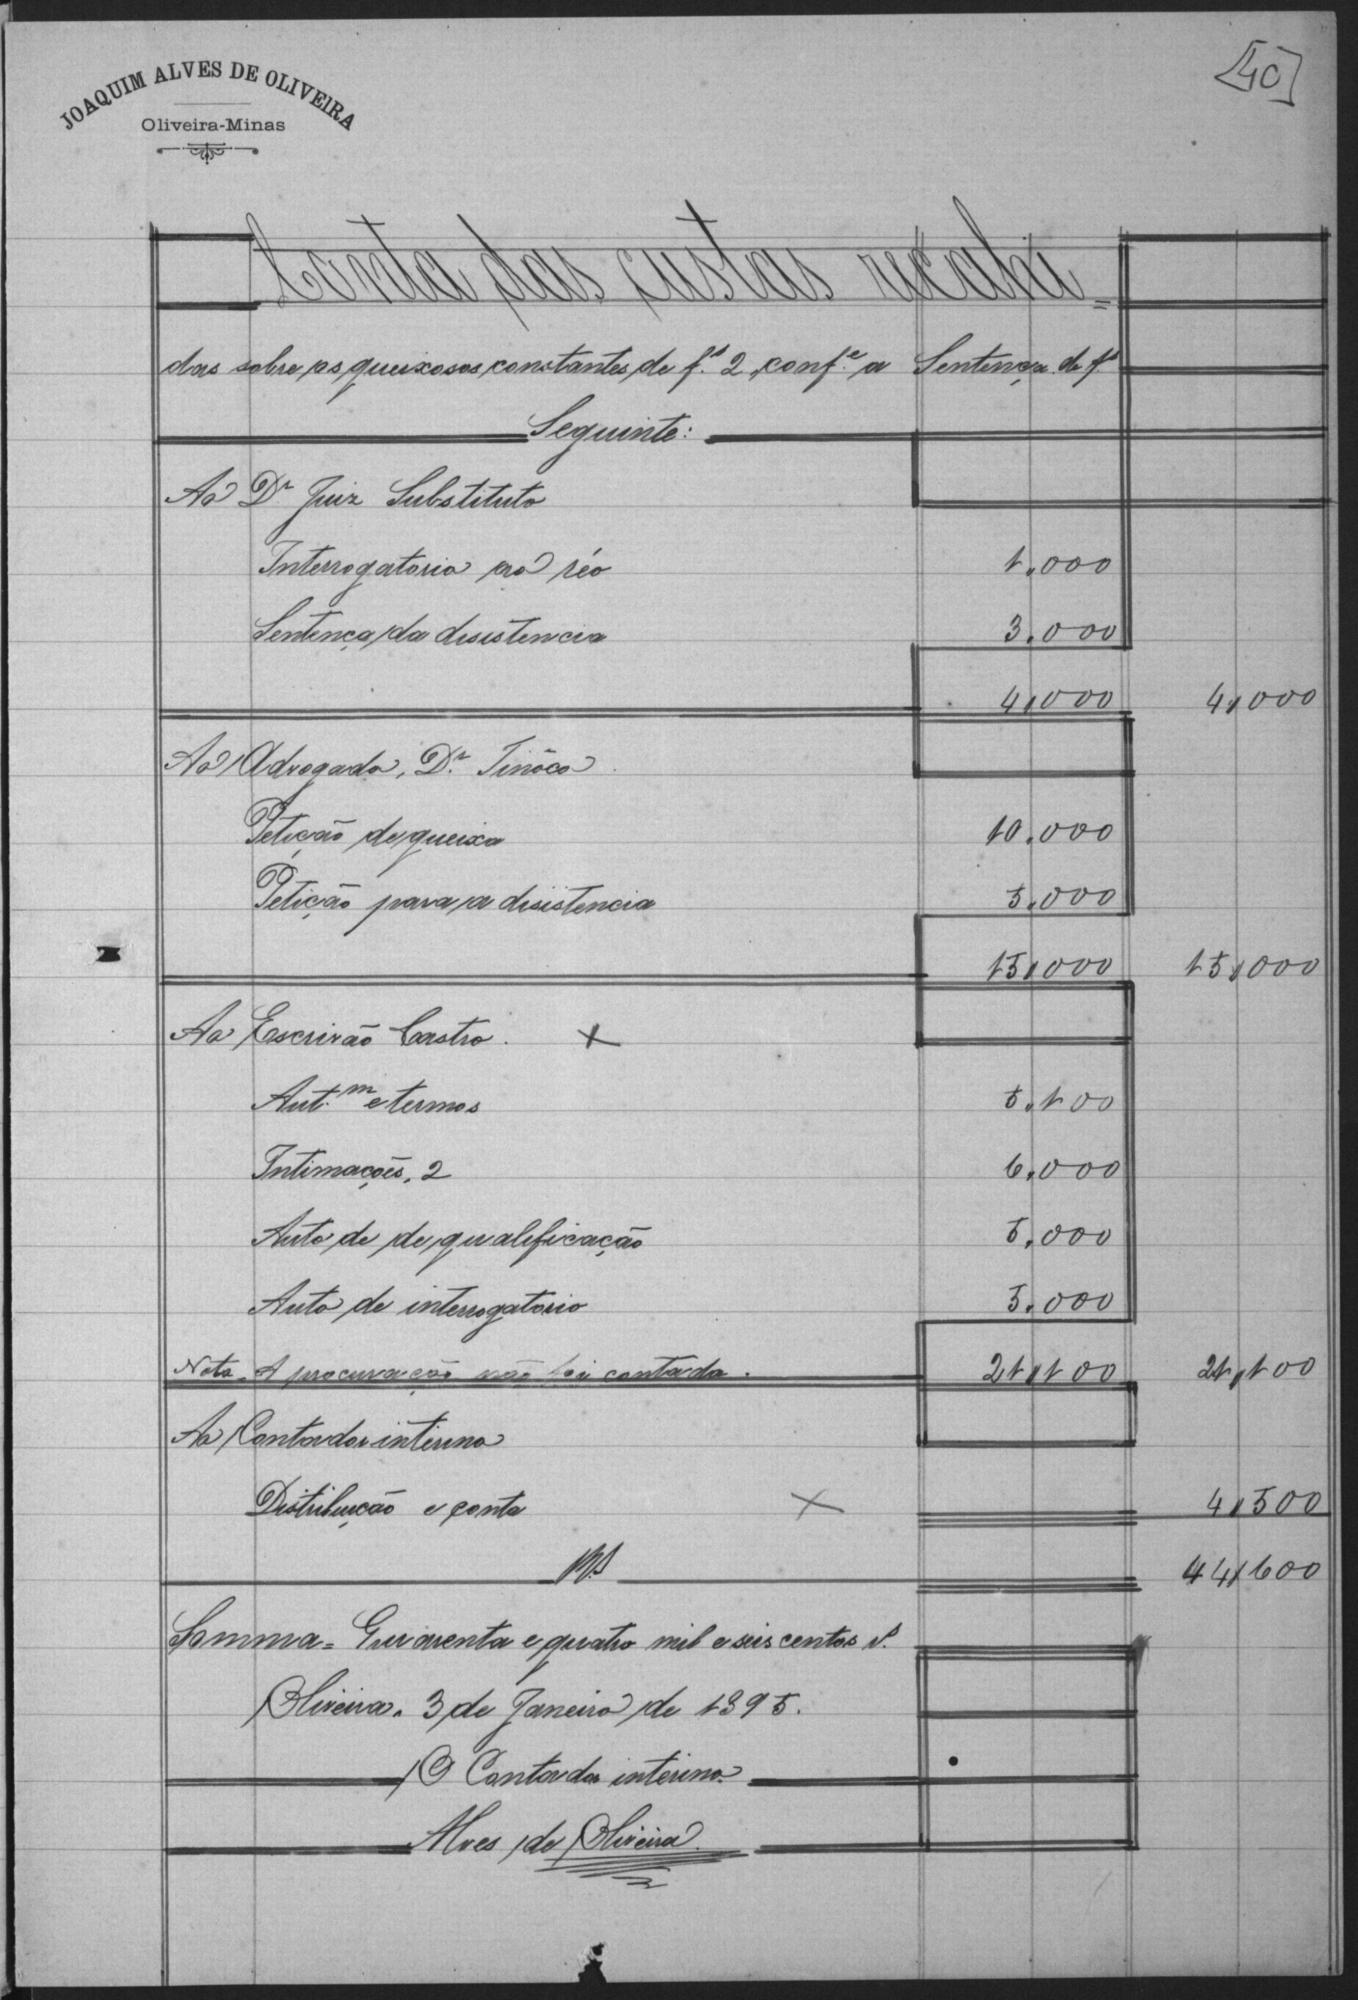 40
JOAQUIM ALVES DE OLIVEIRA
Oliveira-Minas
Conta das custas recahi=
das sobre os queixosos constantes de f.s 2, conf.e a Sentença de f.s
Seguinte:
Ao Dr Juiz Substituto
Interrogatorio ao réo 1.000
Sentença da disistencia 3.000
4,000 4,000
Ao Advogado, Dr. Tinôco
Petição de queixa 10.000
Petição para a disistencia 5.000
15,000 15,000
Ao Escrivão Castro. X
Aut.m e termos 5.100
Intimações, 2 6.000
Auto de de qualificação 5.000
Auto de interrogatorio 5.000
Nota. A procuração não foi contada. 21,100 21,100
Ao Contador interino
Distribuição e conta X 4,500
Rs 44,600
Somma= Quarenta e quatro mil e seis centos rs.
Oliveira. 3 de Janeiro de 1895.
O Contador interino.
Alves de Oliveira.